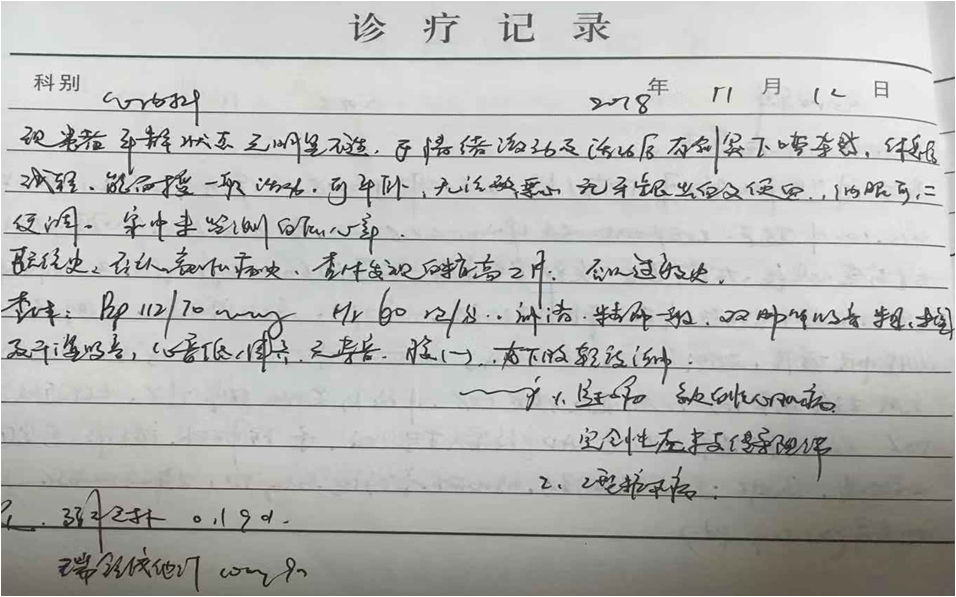 诊疗记录
科别 心内科 2018年 11月 12日
现患者平静状态无明显不适,于情绪激动及活动后有剑突下嘈杂感,休息后
减轻,能耐受一般活动,可平卧,无法 无牙龈出血及便血,纳眠可,二
便调。家中未监测血压心率。
既往史:否认高血压病史,查体发现血糖高2月,否认过敏史
查体:Bp 112/70mmHg Hr 60次/分 神清,精神一般,双肺呼吸音粗,未闻
及干湿啰音,心音低,律齐,无杂音,腹(-),双下肢轻度浮肿
1. 缺血性心肌病
完全性左束支传导阻滞
2. 2型糖尿病
阿司匹林 0.1 qd
瑞舒伐他汀 10mg qn